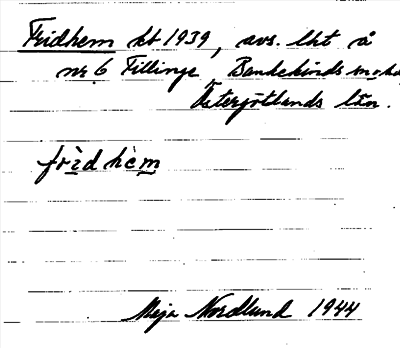 Fridhem kt 1939, avs. lht å
nr 6 Fillinge Bankekinds
Östergötlands län.
frìd hèm
Meja Nordlund 1944